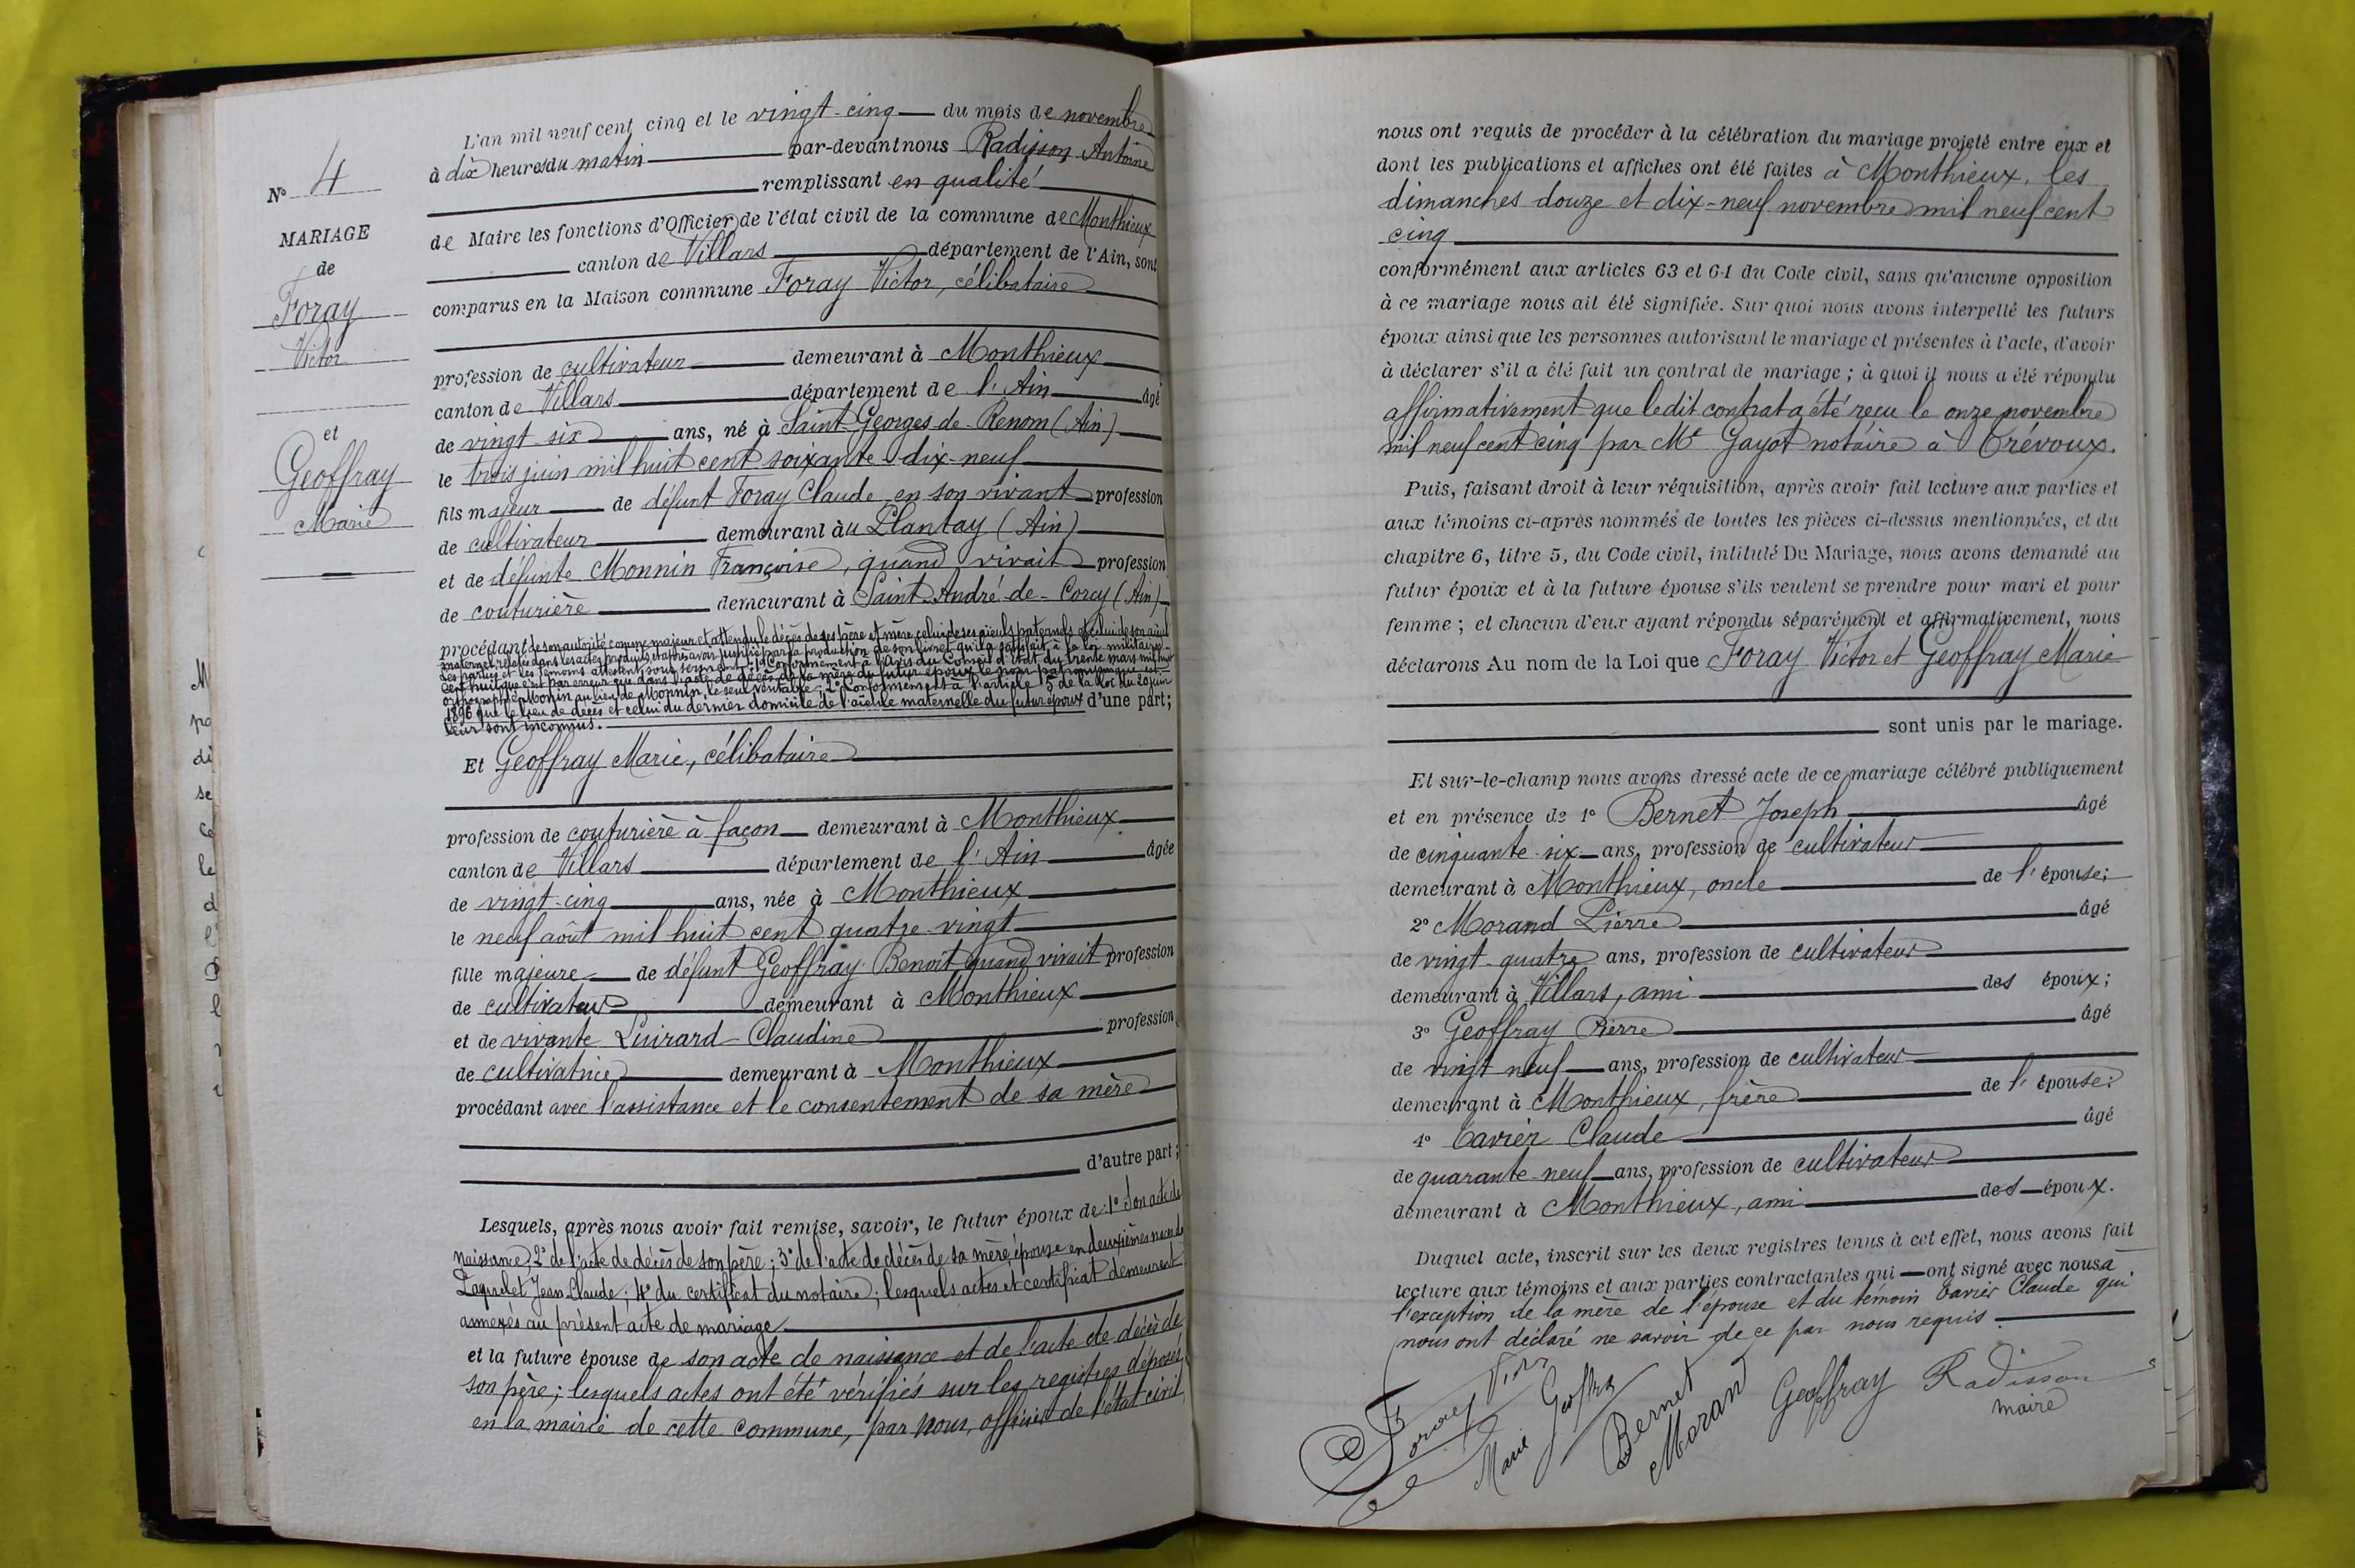 N° 4
MARIAGE
de
Foray
Victor
et
Geoffray
Marie
L'an mil neuf cent cinq et le vingt-cinq du mois de novembre
à dix heures du matin par-devant nous Radisson Antoine
remplissant en qualité
de Maire les fonctions d'Officier de l'état civil de la commune de Monthieux
canton de Villars département de l'Ain, sont
comparus en la Maison commune Foray Victor, célibataire
profession de cultivateur demeurant à Monthieux
canton de Villars département de l'Ain âgé
de vingt-six ans, né à Saint Georges-de-Renom (Ain)
le trois juin mil huit cent soixante-dix-neuf
fils majeur de défunt Foray Claude en son vivant profession
de cultivateur demeurant àu Plantay (Ain)
et de défunte Monnin Françoise, quand vivait profession
de couturière demeurant à Saint-André-de-Corcy (Ain)
procédant de son autorité comme majeur et attendu le décès de ses père et mère, celui de ses aïeuls paternels et celui de son aïeul
maternel relatés dans les actes produits, et après avoir justifié par la production de son livret qu'il a satisfait à la loi militaire.
Les parties et les témoins attestent sous serment : 1° Conformément à l'avis du Conseil d'Etat du trente mars mil huit
cent huit que c'est par erreur que dans l'acte de décès de la mère du futur époux le nom patronymique est
orthographié Monin au lieu de Monnin, le seul véritable ; 2° Conformément à l'article 5 de la loi du 20 juin
1896 que le lieu de décès et celui du dernier domicile de l'aïeule maternelle du futur époux d'une part;
leur sont inconnus.
Et Geoffray Marie, célibataire
profession de couturière à façon demeurant à Monthieux
canton de Villars département de l'Ain âgée
de vingt-cinq ans, née à Monthieux
le neuf août mil huit cent quatre-vingt
fille majeure de défunt Geoffray Benoît quand vivait profession
de cultivateur demeurant à Monthieux
et de vivante Luirard Claudine profession
de cultivatrice demeurant à Monthieux
procédant avec l'assistance et le consentement de sa mère
d'autre part;
Lesquels, après nous avoir fait remise, savoir, le futur époux de : 1° Son acte de
naissance ; 2° de l'acte de décès de son père ; 3° de l'acte de décès de sa mère, épouse en deuxièmes noces de
Jean-Claude ; 4° du certificat du notaire ; lesquels actes et certificat demeurent
annexés au présent acte de mariage.
et la future épouse de son acte de naissance et de l'acte de décès de
son père ; lesquels actes ont été vérifiés sur les registres déposés
en la mairie de cette commune, par nous, officier de l'état civil,
nous ont requis de procéder à la célébration du mariage projeté entre eux et
dont les publications et affiches ont été faites à Monthieux, les
dimanches douze et dix-neuf novembre mil neuf cent
cinq
conformément aux articles 63 et 64 du Code civil, sans qu'aucune opposition
à ce mariage nous ait été signifiée. Sur quoi nous avons interpellé les futurs
époux ainsi que les personnes autorisant le mariage et présentes à l'acte, d'avoir
à déclarer s'il a été fait un contrat de mariage ; à quoi il nous a été répondu
affirmativement que ledit contrat a été reçu le onze novembre
mil neuf cent cinq par Me Gayot notaire à Trévoux.
Puis, faisant droit à leur réquisition, après avoir fait lecture aux parties et
aux témoins ci-après nommés de toutes les pièces ci-dessus mentionnées, et du
chapitre 6, titre 5, du Code civil, intitulé Du Mariage, nous avons demandé au
futur époux et à la future épouse s'ils veulent se prendre pour mari et pour
femme ; et chacun d'eux ayant répondu séparément et affirmativement, nous
déclarons Au nom de la Loi que Foray Victor et Geoffray Marie
sont unis par le mariage.
Et sur-le-champ nous avons dressé acte de ce mariage célébré publiquement
et en présence de 1° Bernet Joseph âgé
de cinquante-six ans, profession de cultivateur
demeurant à Monthieux, oncle de l'épouse;
2° Morand Pierre âgé
de vingt-quatre ans, profession de cultivateur
demeurant à Villars, ami des époux;
3° Geoffray Pierre âgé
de vingt neuf ans, profession de cultivateur
demeurant à Monthieux, frère de l'épouse;
4° Tavier Claude âgé
de quarante-neuf ans, profession de cultivateur
demeurant à Monthieux, ami des époux.
Duquel acte, inscrit sur les deux registres tenus à cet effet, nous avons fait
lecture aux témoins et aux parties contractantes qui ont signé avec nous à
l'exception de la mère de l'épouse et du témoin Tavier Claude qui
nous ont déclaré ne savoir de ce par nous requis.
Foray Victor
Marie Geoffray
Bernet
Morand
Geoffray
Radisson
maire